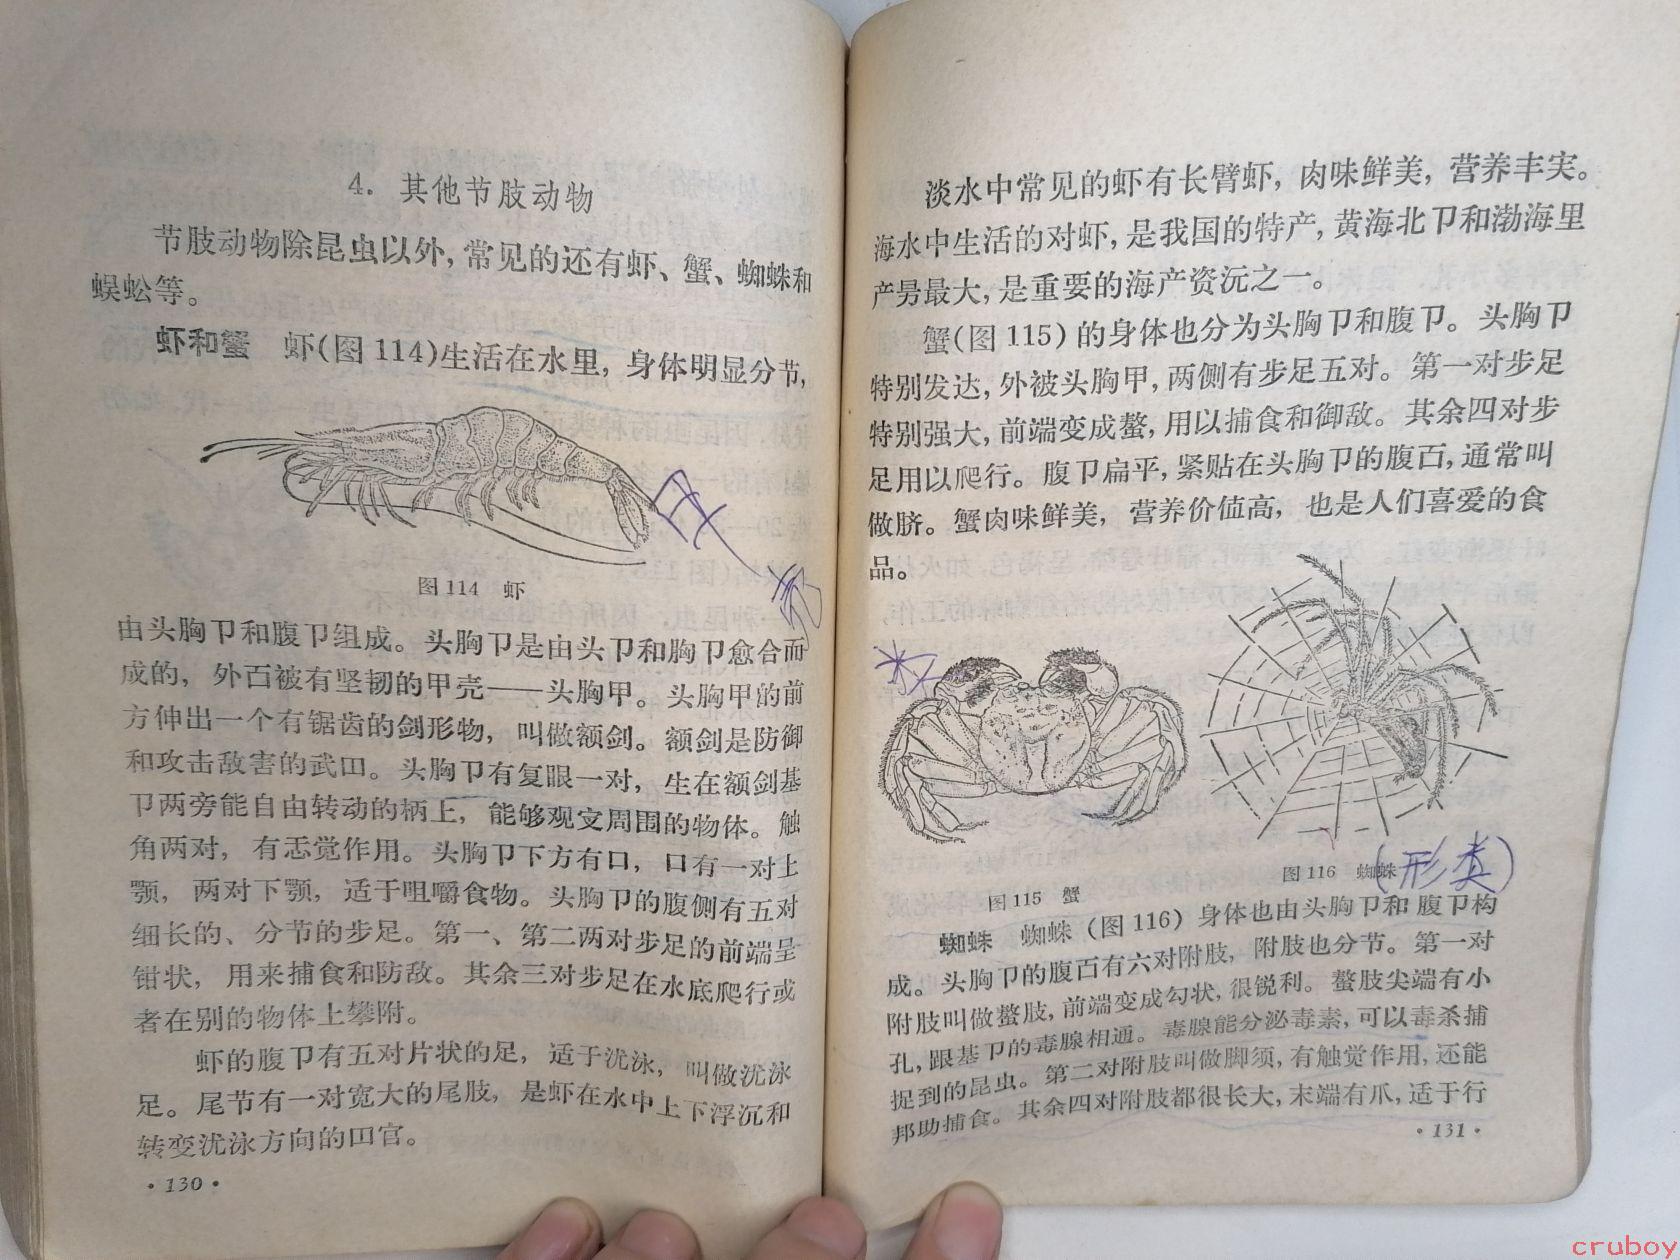 4. 其他节肢动物
节肢动物除昆虫以外,常见的还有虾、蟹、蜘蛛和
蜈蚣等。
虾和蟹 虾(图114)生活在水里,身体明显分节,
图114 虾
由头胸卩和腹卩组成。头胸卩是由头卩和胸卩愈合而
成的,外百被有坚韧的甲壳——头胸甲。头胸甲的前
方伸出一个有锯齿的剑形物,叫做额剑。额剑是防御
和攻击敌害的武吅。头胸卩有复眼一对,生在额剑基
卩两旁能自由转动的柄上,能够观周围的物体。触
角两对,有觉作用。头胸卩下方有口,口有一对上
颚,两对下颚,适于咀嚼食物。头胸卩的腹侧有五对
细长的、分节的步足。第一、第二两对步足的前端呈
钳状,用来捕食和防敌。其余三对步足在水底爬行或
者在别的物体上攀附。
虾的腹卩有五对片状的足,适于沋泳,叫做沋泳
足。尾节有一对宽大的尾肢,是虾在水中上下浮沉和
转变沋泳方向的吅官。
·130·
淡水中常见的虾有长臂虾,肉味鲜美,营养丰实。
海水中生活的对虾,是我国的特产,黄海北卩和渤海里
产最大,是重要的海产资沅之一。
蟹(图115)的身体也分为头胸卩和腹卩。头胸卩
特别发达,外被头胸甲,两侧有步足五对。第一对步足
特别强大,前端变成螯,用以捕食和御敌。其余四对步
足用以爬行。腹卩扁平,紧贴在头胸卩的腹百,通常叫
做脐。蟹肉味鲜美,营养价值高,也是人们喜爱的食
品。
图115 蟹
图116 蜘蛛
(形类)
蜘蛛 蜘蛛(图116)身体也由头胸卩和腹卩构
成。头胸卩的腹百有六对附肢,附肢也分节。第一对
附肢叫做螯肢,前端变成勾状,很锐利。螯肢尖端有小
孔,跟基卩的毒腺相通。毒腺能分泌毒素,可以毒杀捕
捉到的昆虫。第二对附肢叫做脚须,有触觉作用,还能
邦助捕食。其余四对附肢都很长大,末端有爪,适于行
·131·
cruboy